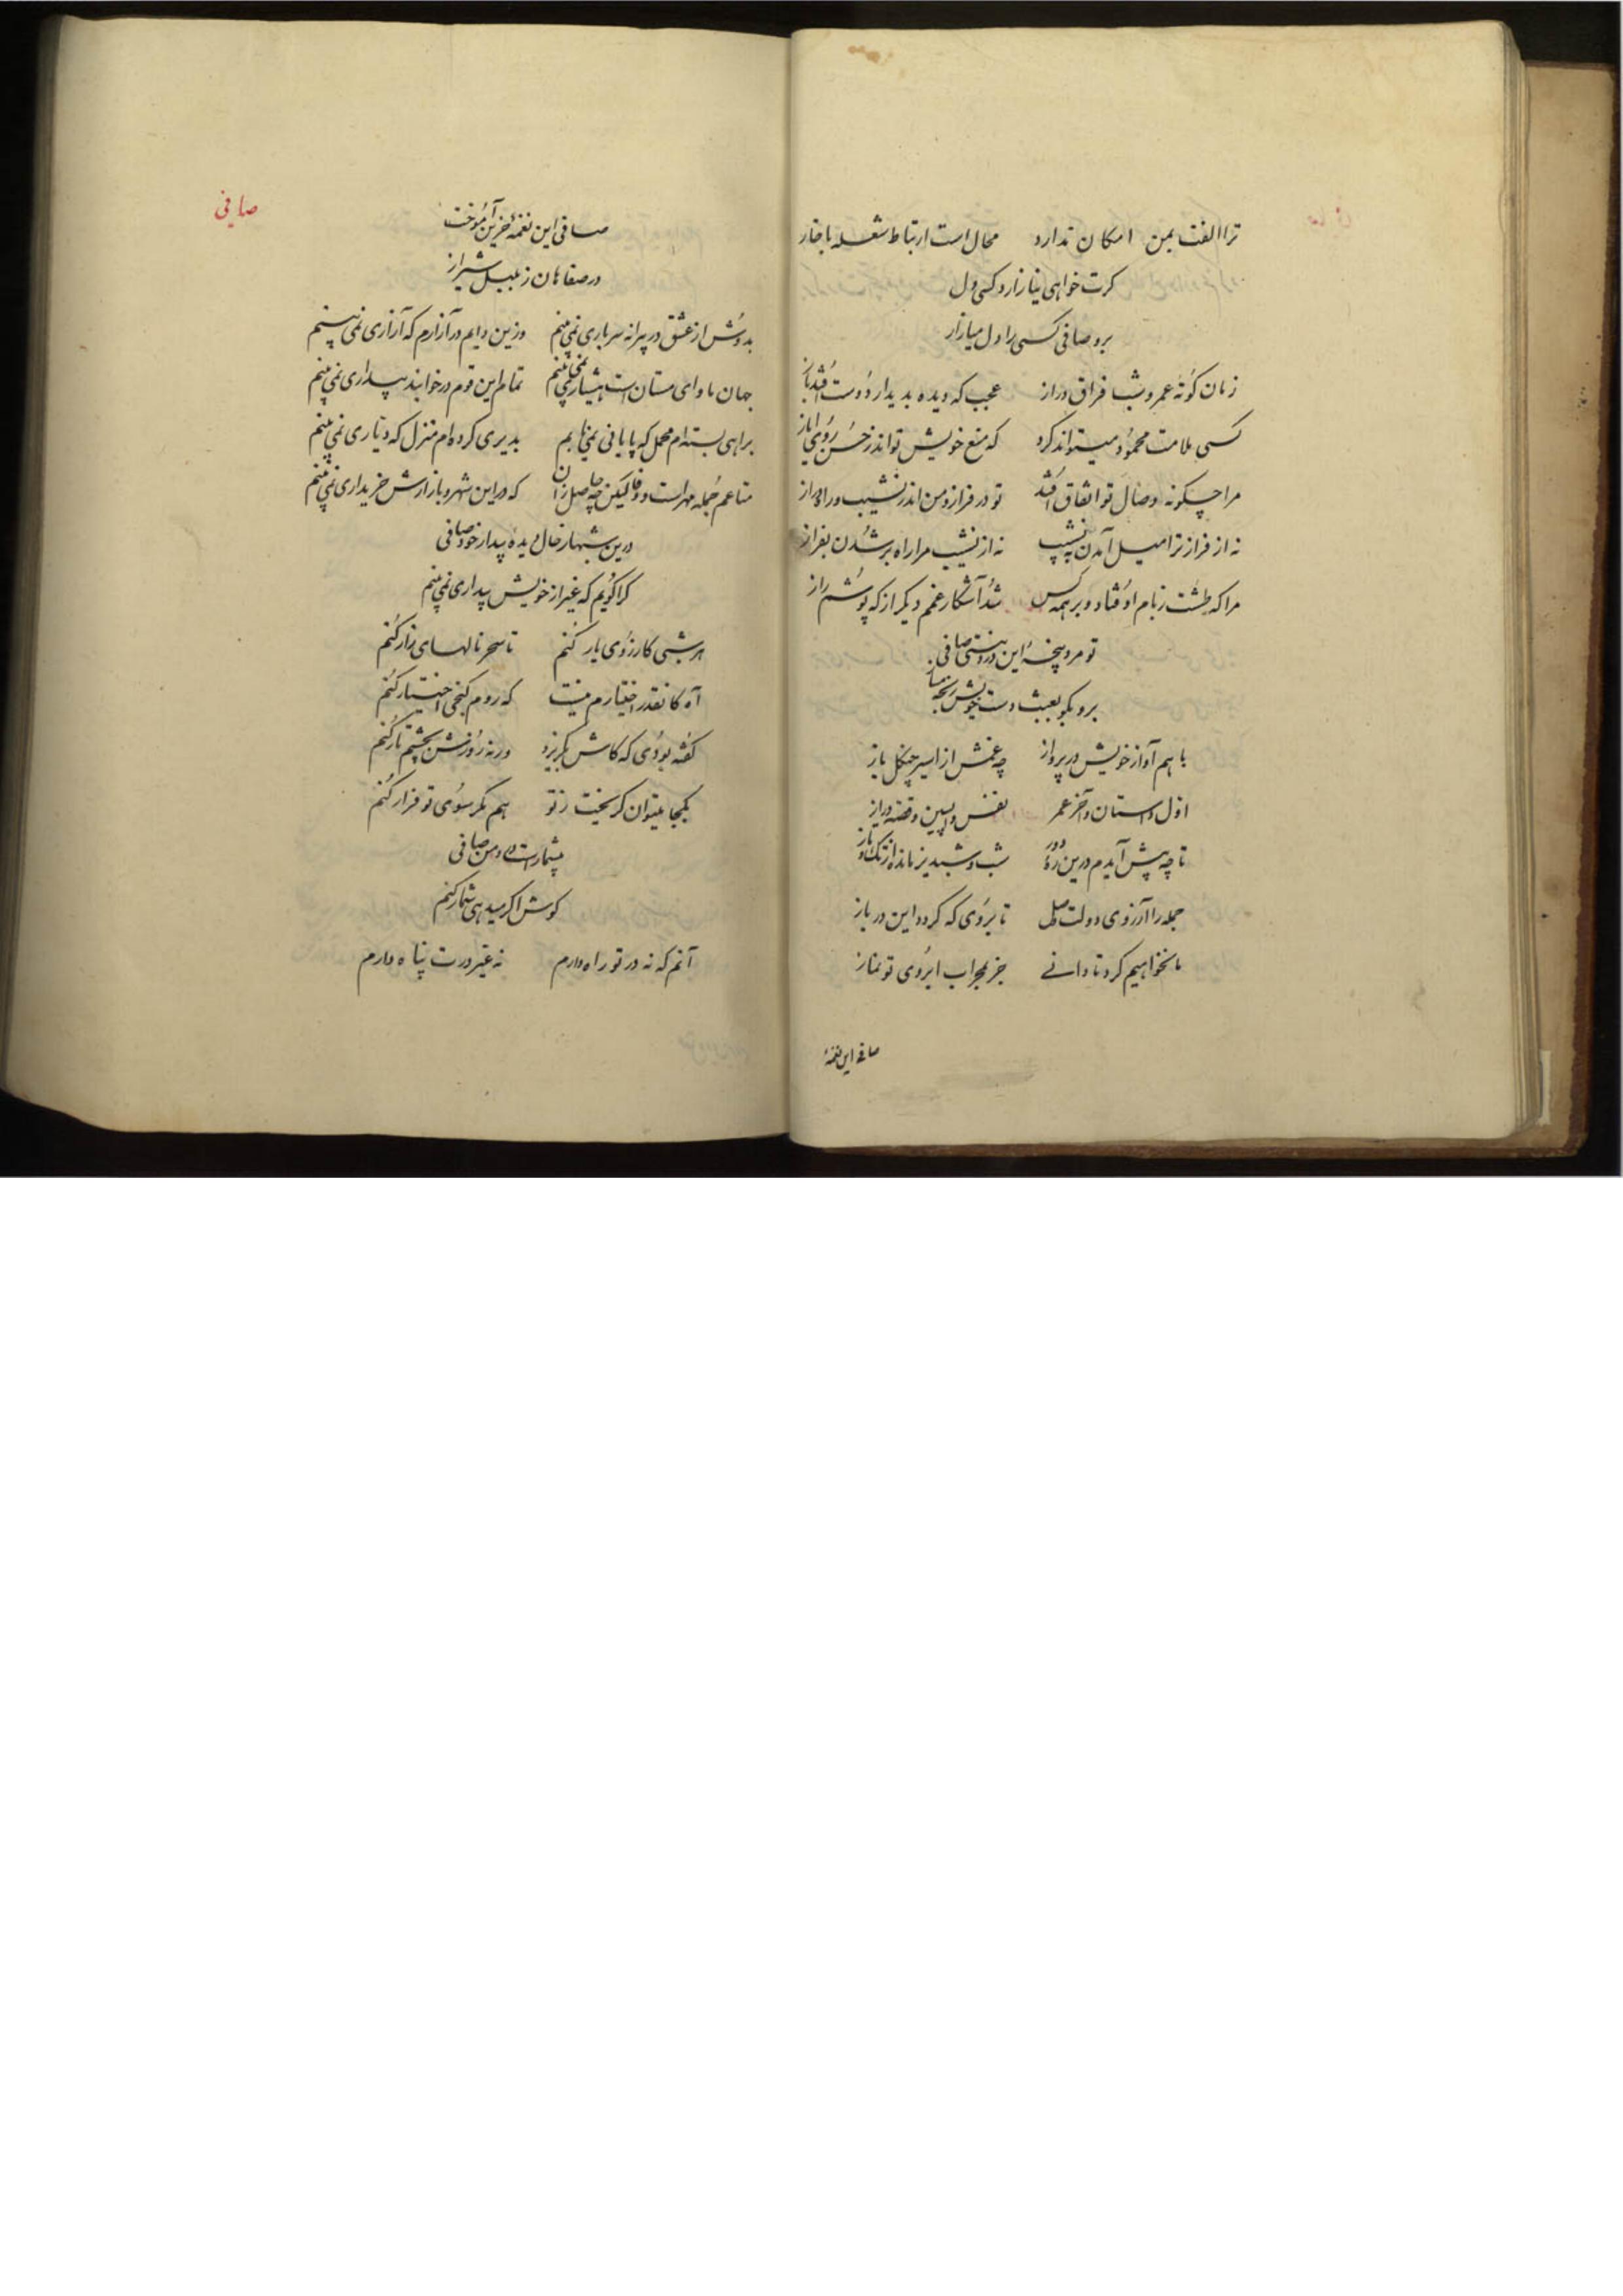 ترا الفت بمن امکان ندارد محال است ارتباط شعله با خار
کرت خواهی نیازارد کسی دل
برو صافی کسی را دل میازار
زمان کوته عمر و شب فراق دراز عجب که دیده بدیدار دوست افتد باز
کسی ملامت محمود میتواند کرد که منع خویش تواند ز حسن روی ایاز
مرا چکونه وصال تو اتفاق افتد تو در فراز و من اندر نشیب و راه دراز
نه از فراز ترا میل آمدن به نشیب نه از نشیب مرا راه بر شدن بفراز
مرا که طشت ز بام اوفتاد و بر همه کس شد آشکار غمم دیکر از که پوشم راز
تو مرد پنجه این در نیستی صافی
برو مکو بعبث دست خویش رنجه مساز
با هم آواز خویش در پرواز چه غمش از اسیر چنکل باز
اول داستان و آخر عمر نفس واپسین و قصه دراز
تا چه پیش آیدم درین ره دور شب و شبدیز مانده از تک و تاز
جمله را آرزوی دولت وصل تا بروی که کردد این در باز
ما نخواهیم کرد تا دانی جز بمحراب ابروی تو نماز
صافی این نغمه
صافی
صافی این نغمه حزین آموخت
در صفاهان ز بلبل شیراز
بدوش از عشق در پیرانه سر باری نمی‌بینم وزین دایم در آزارم که آزاری نمی‌بینم
جهان ماوای مستان است هشیاری نمی‌بینم تمام این قوم در خوابند بیداری نمی‌بینم
براهی بسته‌ام محمل که پایانی نمی‌یابم بدیری کرده‌ام منزل که دیاری نمی‌بینم
متاعم جمله مهر است و وفا لیکن چه حاصل زان که در این شهر و بازارش خریداری نمی‌بینم
درین شبها ز حال دیده بیدار خود صافی
کرا کویم که غیر از خویش بیداری نمی‌بینم
هر شبی کارزوی یار کنم تا سحر نالهای زار کنم
آه کانقدر اختیارم نیست که روم کنجی اختیار کنم
کفته بودی که کاش بکریزد ورنه روزش بچشم تار کنم
بکجا میتوان کریخت ز تو هم مکر سوی تو فرار کنم
بیشمار است درد من صافی
کوش اکر میدهی شمار کنم
آنم که نه در تو راه دارم نه غیر درت پناه دارم